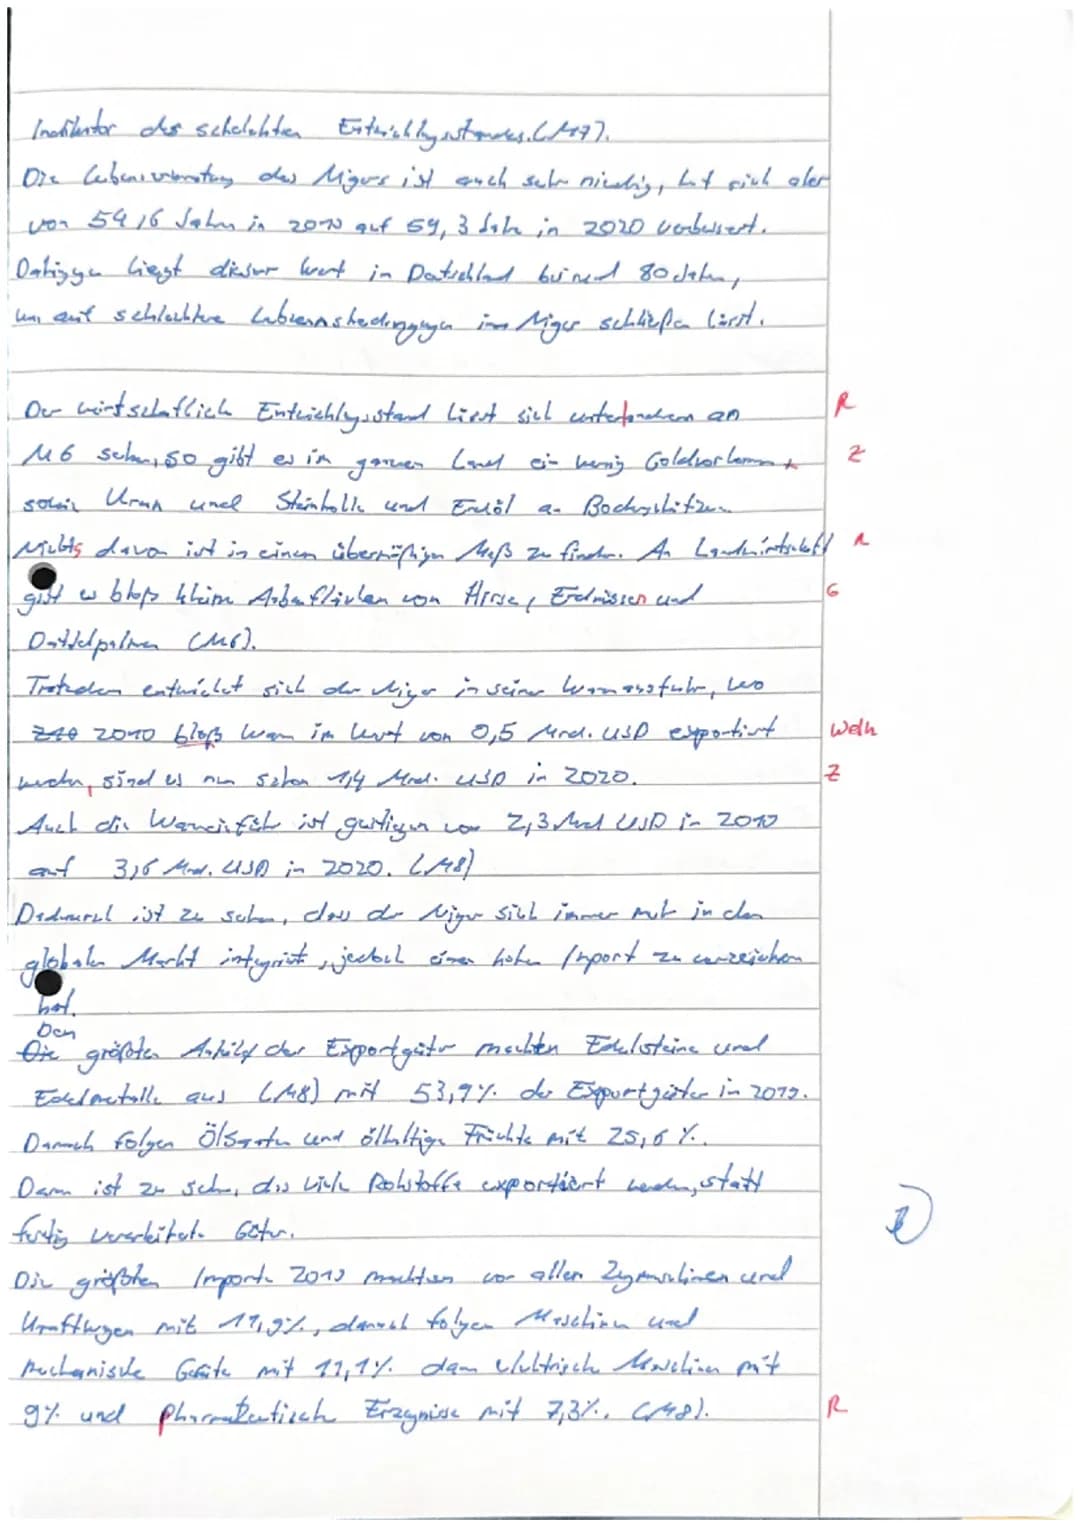 Indikator des schlechten Entwicklungsstandes. (M17).
Die Lebenserwartung des Nigers ist auch sehr niedrig, hat sich aber
von 54,6 Jahren in 2010 auf 59,3 Jahre in 2020 verbessert.
Dahingegen liegt dieser Wert in Deutschland bei rund 80 Jahren,
was auf schlechtere Lebensbedingungen im Niger schließen lässt.
Der wirtschaftlich Entwicklungsstand lässt sich unteranderem an R
M6 sehen, so gibt es im ganzen Land ein wenig Goldvorkommen Z
sowie Uran und Steinkolle und Erdöl an Bodenschätzen.
Nichts davon ist in einem übermäßigen Maß zu finden. An Landwirtschaft R
gibt es bloß kleine Anbauflächen von Hirse, Erdnissen und G
Dattelpalmen (M6).
Trotzdem entwickelt sich der Niger in seiner Warenausfuhr, wo
2010 bloß Waren im Wert von 0,5 Mrd. USD exportiert Welh
werden, sind es nun schon 1,4 Mrd. USD in 2020. Z
Auch die Wareneinfuhr ist gestiegen von 2,3 Mrd USD in 2010
auf 3,6 Mrd. USD in 2020. (M8)
Dadurch ist zu sehen, dass der Niger sich immer mehr in den
globalen Markt integriert, jedoch einen hohen Import zu verzeichnen
hat.
Den
Die größten Anteil der Exportgüter machten Edelsteine und
Edelmetalle aus (M8) mit 53,9% der Exportgüter in 2019.
Danach folgen Ölsaaten und ölhaltige Früchte mit 25,6%.
Daran ist zu sehen, dass viele Rohstoffe exportiert werden, statt
fertig verarbeitete Güter.
Die größten Importe 2019 machten vor allen Zugmaschinen und
Kraftwagen mit 11,9%, danach folgen Maschinen und
mechanische Geräte mit 11,1% dann elektrische Maschinen mit
9% und pharmateutisch Erzeugnisse mit 7,3%. (M8). R